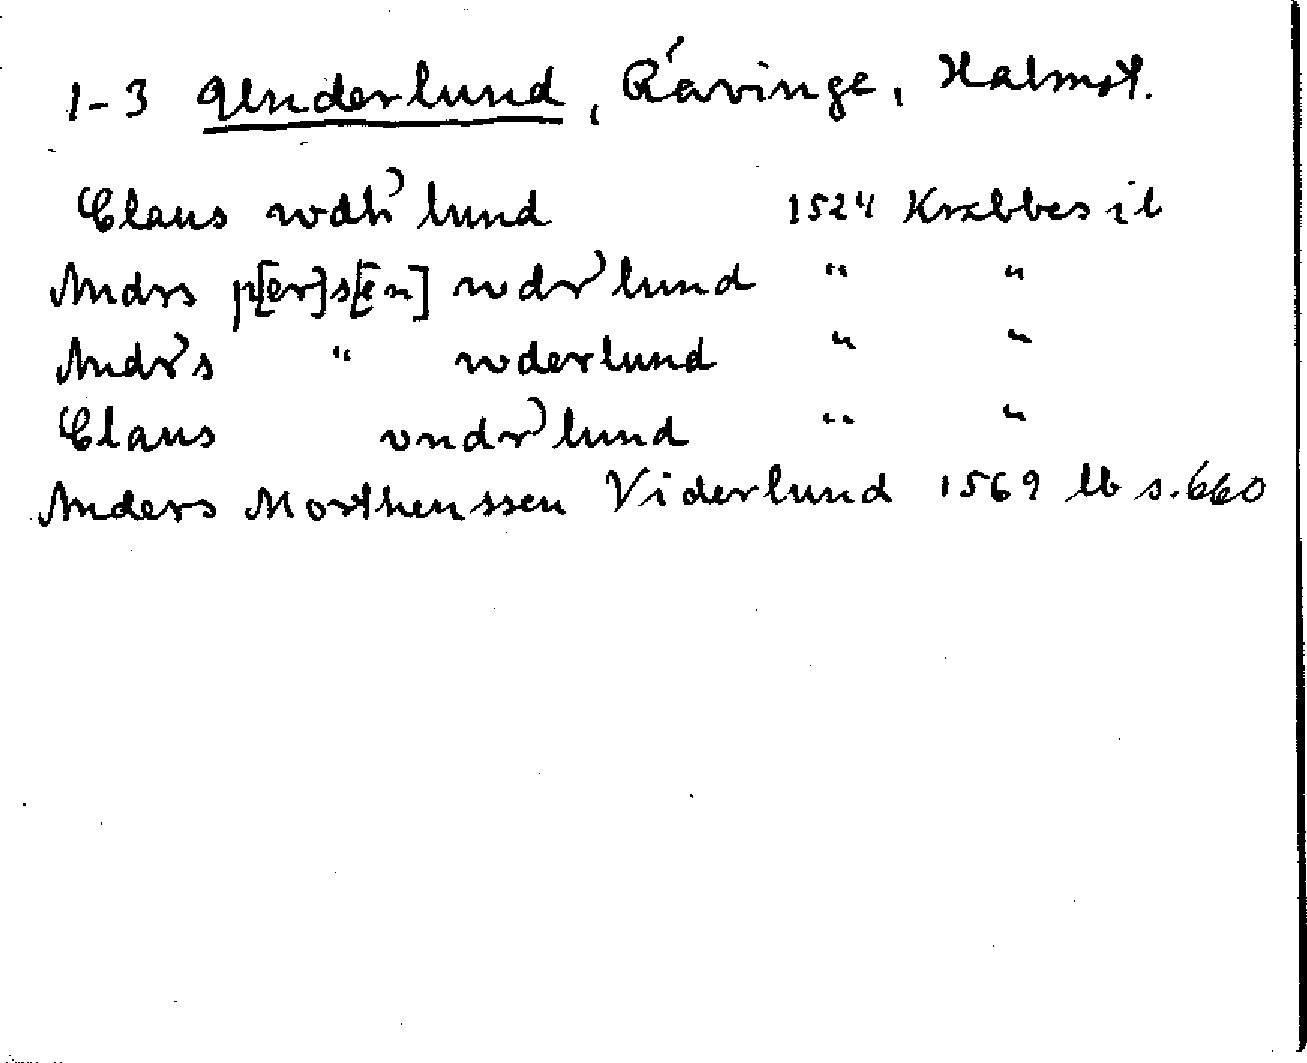 1-3 Underlund, Rävinge, Halmst.
Claus wdh' lund 1524 Krabbes il
Andrs p[er]s[en] wdr' lund " "
Andr's " wderlund " "
Claus vndr' lund " "
Anders Morthenssen Viderlund 1569 lb s. 660